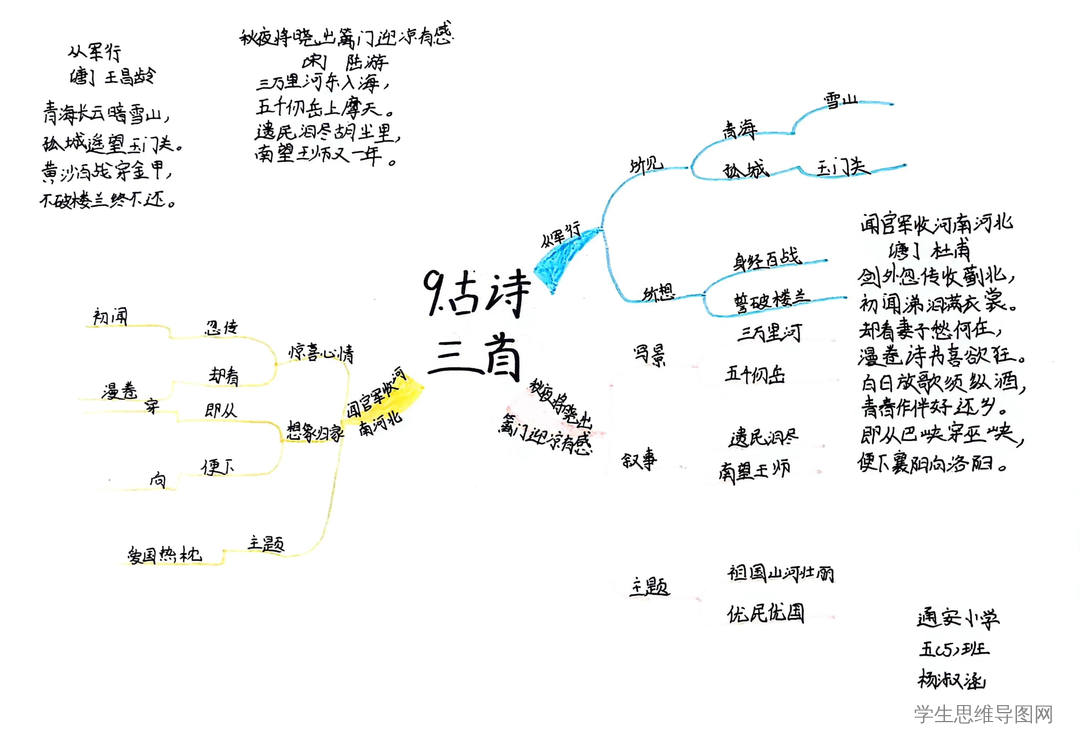 从军行
[唐] 王昌龄
青海长云暗雪山，
孤城遥望玉门关。
黄沙百战穿金甲，
不破楼兰终不还。
秋夜将晓出篱门迎凉有感
[宋] 陆游
三万里河东入海，
五千仞岳上摩天。
遗民泪尽胡尘里，
南望王师又一年。
9.古诗
三首
从军行
所见
青海
雪山
孤城
玉门关
所想
身经百战
誓破楼兰
秋夜将晓出
篱门迎凉有感
写景
三万里河
五千仞岳
叙事
遗民泪尽
南望王师
主题
祖国山河壮丽
优民优国
闻官军收河
南河北
惊喜心情
忽传
初闻
却看
漫卷
想象归家
即从
穿
便下
向
主题
爱国热枕
闻官军收河南河北
[唐] 杜甫
剑外忽传收蓟北，
初闻涕泪满衣裳。
却看妻子愁何在，
漫卷诗书喜欲狂。
白日放歌须纵酒，
青春作伴好还乡。
即从巴峡穿巫峡，
便下襄阳向洛阳。
通安小学
五(5)班
杨淑涵
学生思维导图网